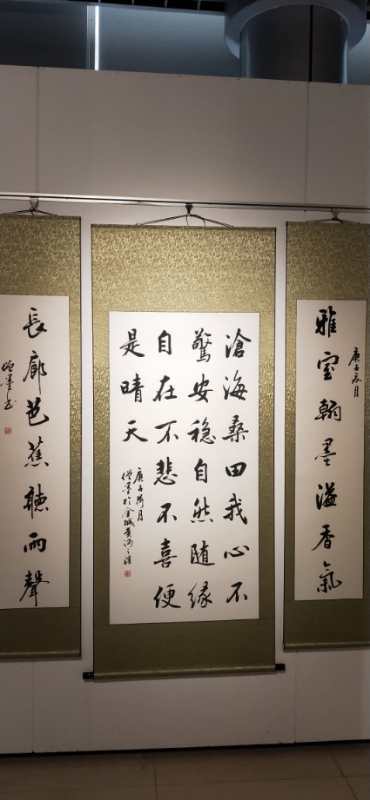 雅室翰墨溢香氣
庚子月
滄海桑田我心不
驚安穩自然隨緣
自在不悲不喜便
是晴天
庚子荷月
墨於金城黄河之濱
長廊芭蕉聽雨聲
墨书